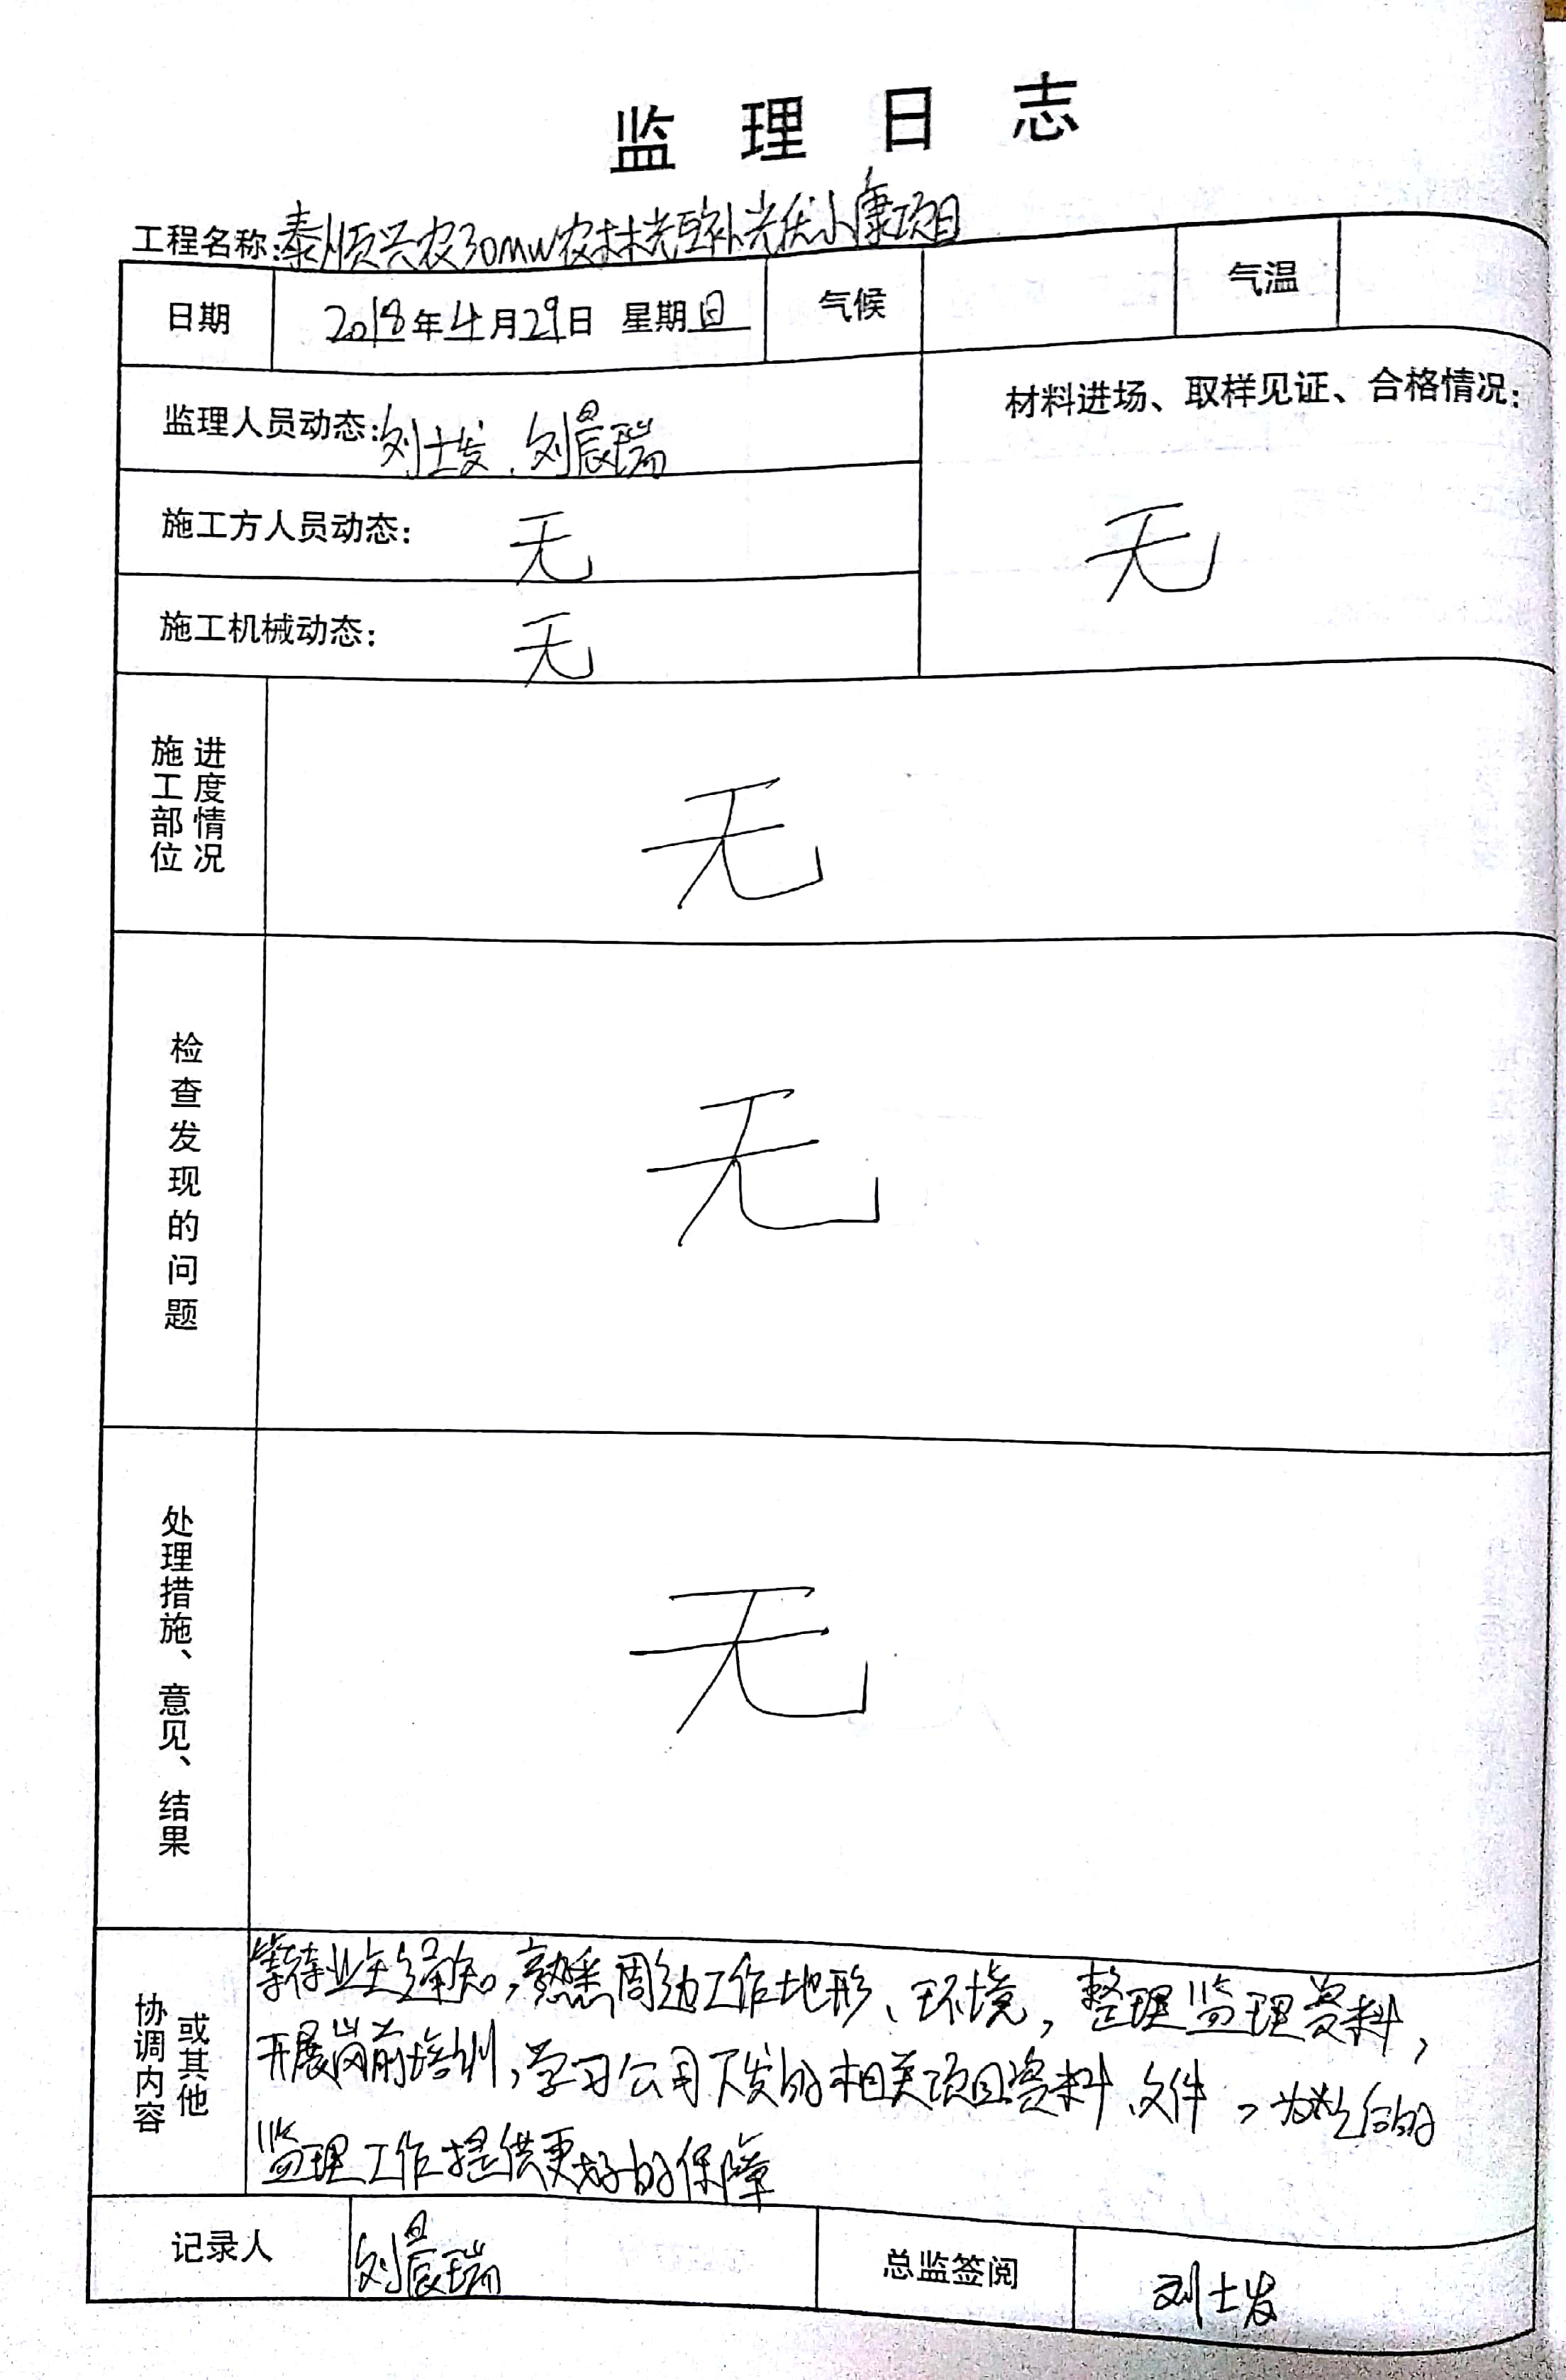 监理日志
工程名称:泰顺兴农30MW农林光互补光伏小康项目
日期 2018年4月29日 星期日 气候 气温
监理人员动态:刘士发、刘晨瑞
材料进场、取样见证、合格情况:
施工方人员动态: 无
无
施工机械动态: 无
施工部位
进度情况
无
检查发现的问题
无
处理措施、意见、结果
无
协调内容
或其他
等待业主通知,熟悉周边工作地形、环境,整理监理资料,
开展岗前培训,学习公司下发的相关项目资料、文件,为以后的
监理工作提供更好的保障
记录人 刘晨瑞 总监签阅 刘士发